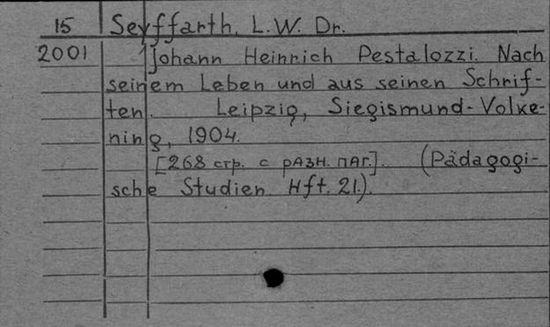 15 Seyffarth, L.W. Dr.
2001 Johann Heinrich Pestalozzi. Nach
seinem Leben und aus seinen Schrif-
ten. Leipzig, Siegismund-Volke-
ning, 1904.
[268 стр. с разн. паг.]. (Pädagogi-
sche Studien. Hft. 21.).